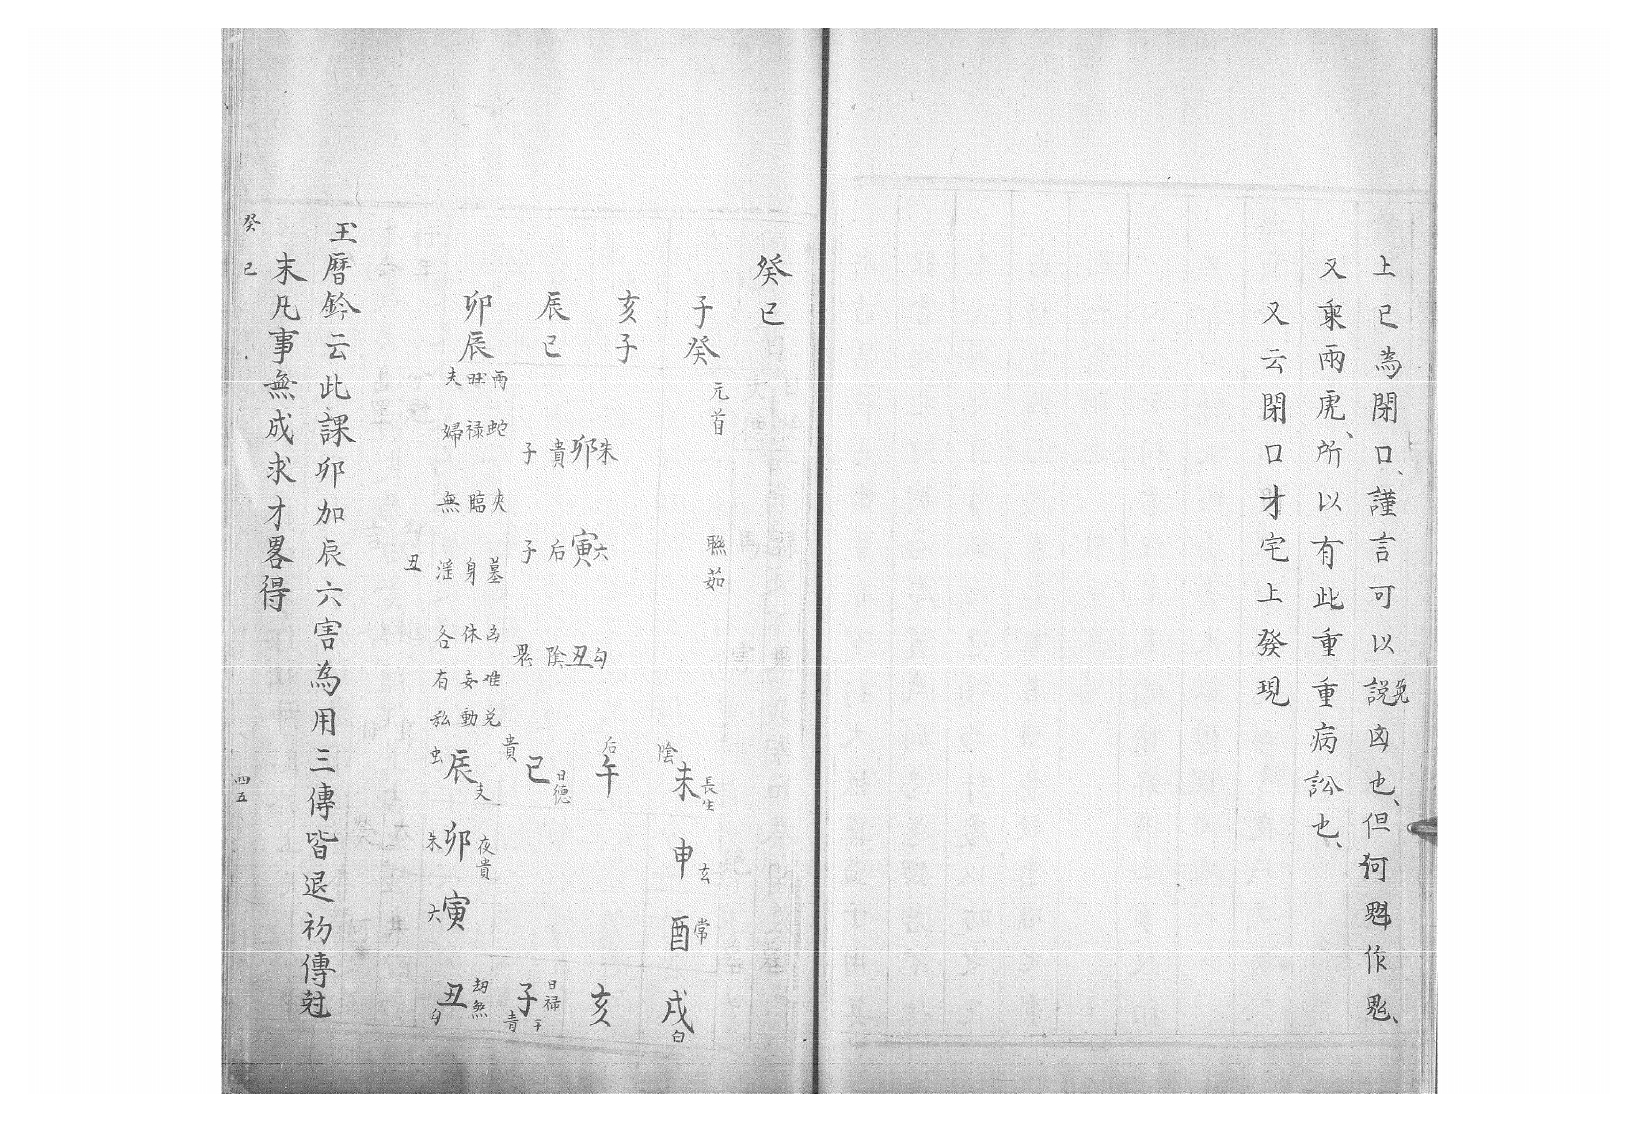 上已為閉口、謹言可以說免凶也、但何鬽作鬽、
又乘兩虎、所以有此重重病訟也、
又云閉口才宅上發現
癸巳
子癸
亥子
辰巳
卯辰
元首
聯茹
朱卯貴子
六寅后子
勾丑陰
兩蛇夾墓凶難兑
禄臨身休妄動
夫婦無淫各有私
丑
陰未長生
申玄
酉常
戌白
后午
亥
貴巳日德
子青干
虫辰支
朱卯夜貴
六寅
丑勾劫煞
玉曆鈐云此課卯加辰六害為用三傳皆退初傳尅
末凡事無成求才畧得
癸巳
四五